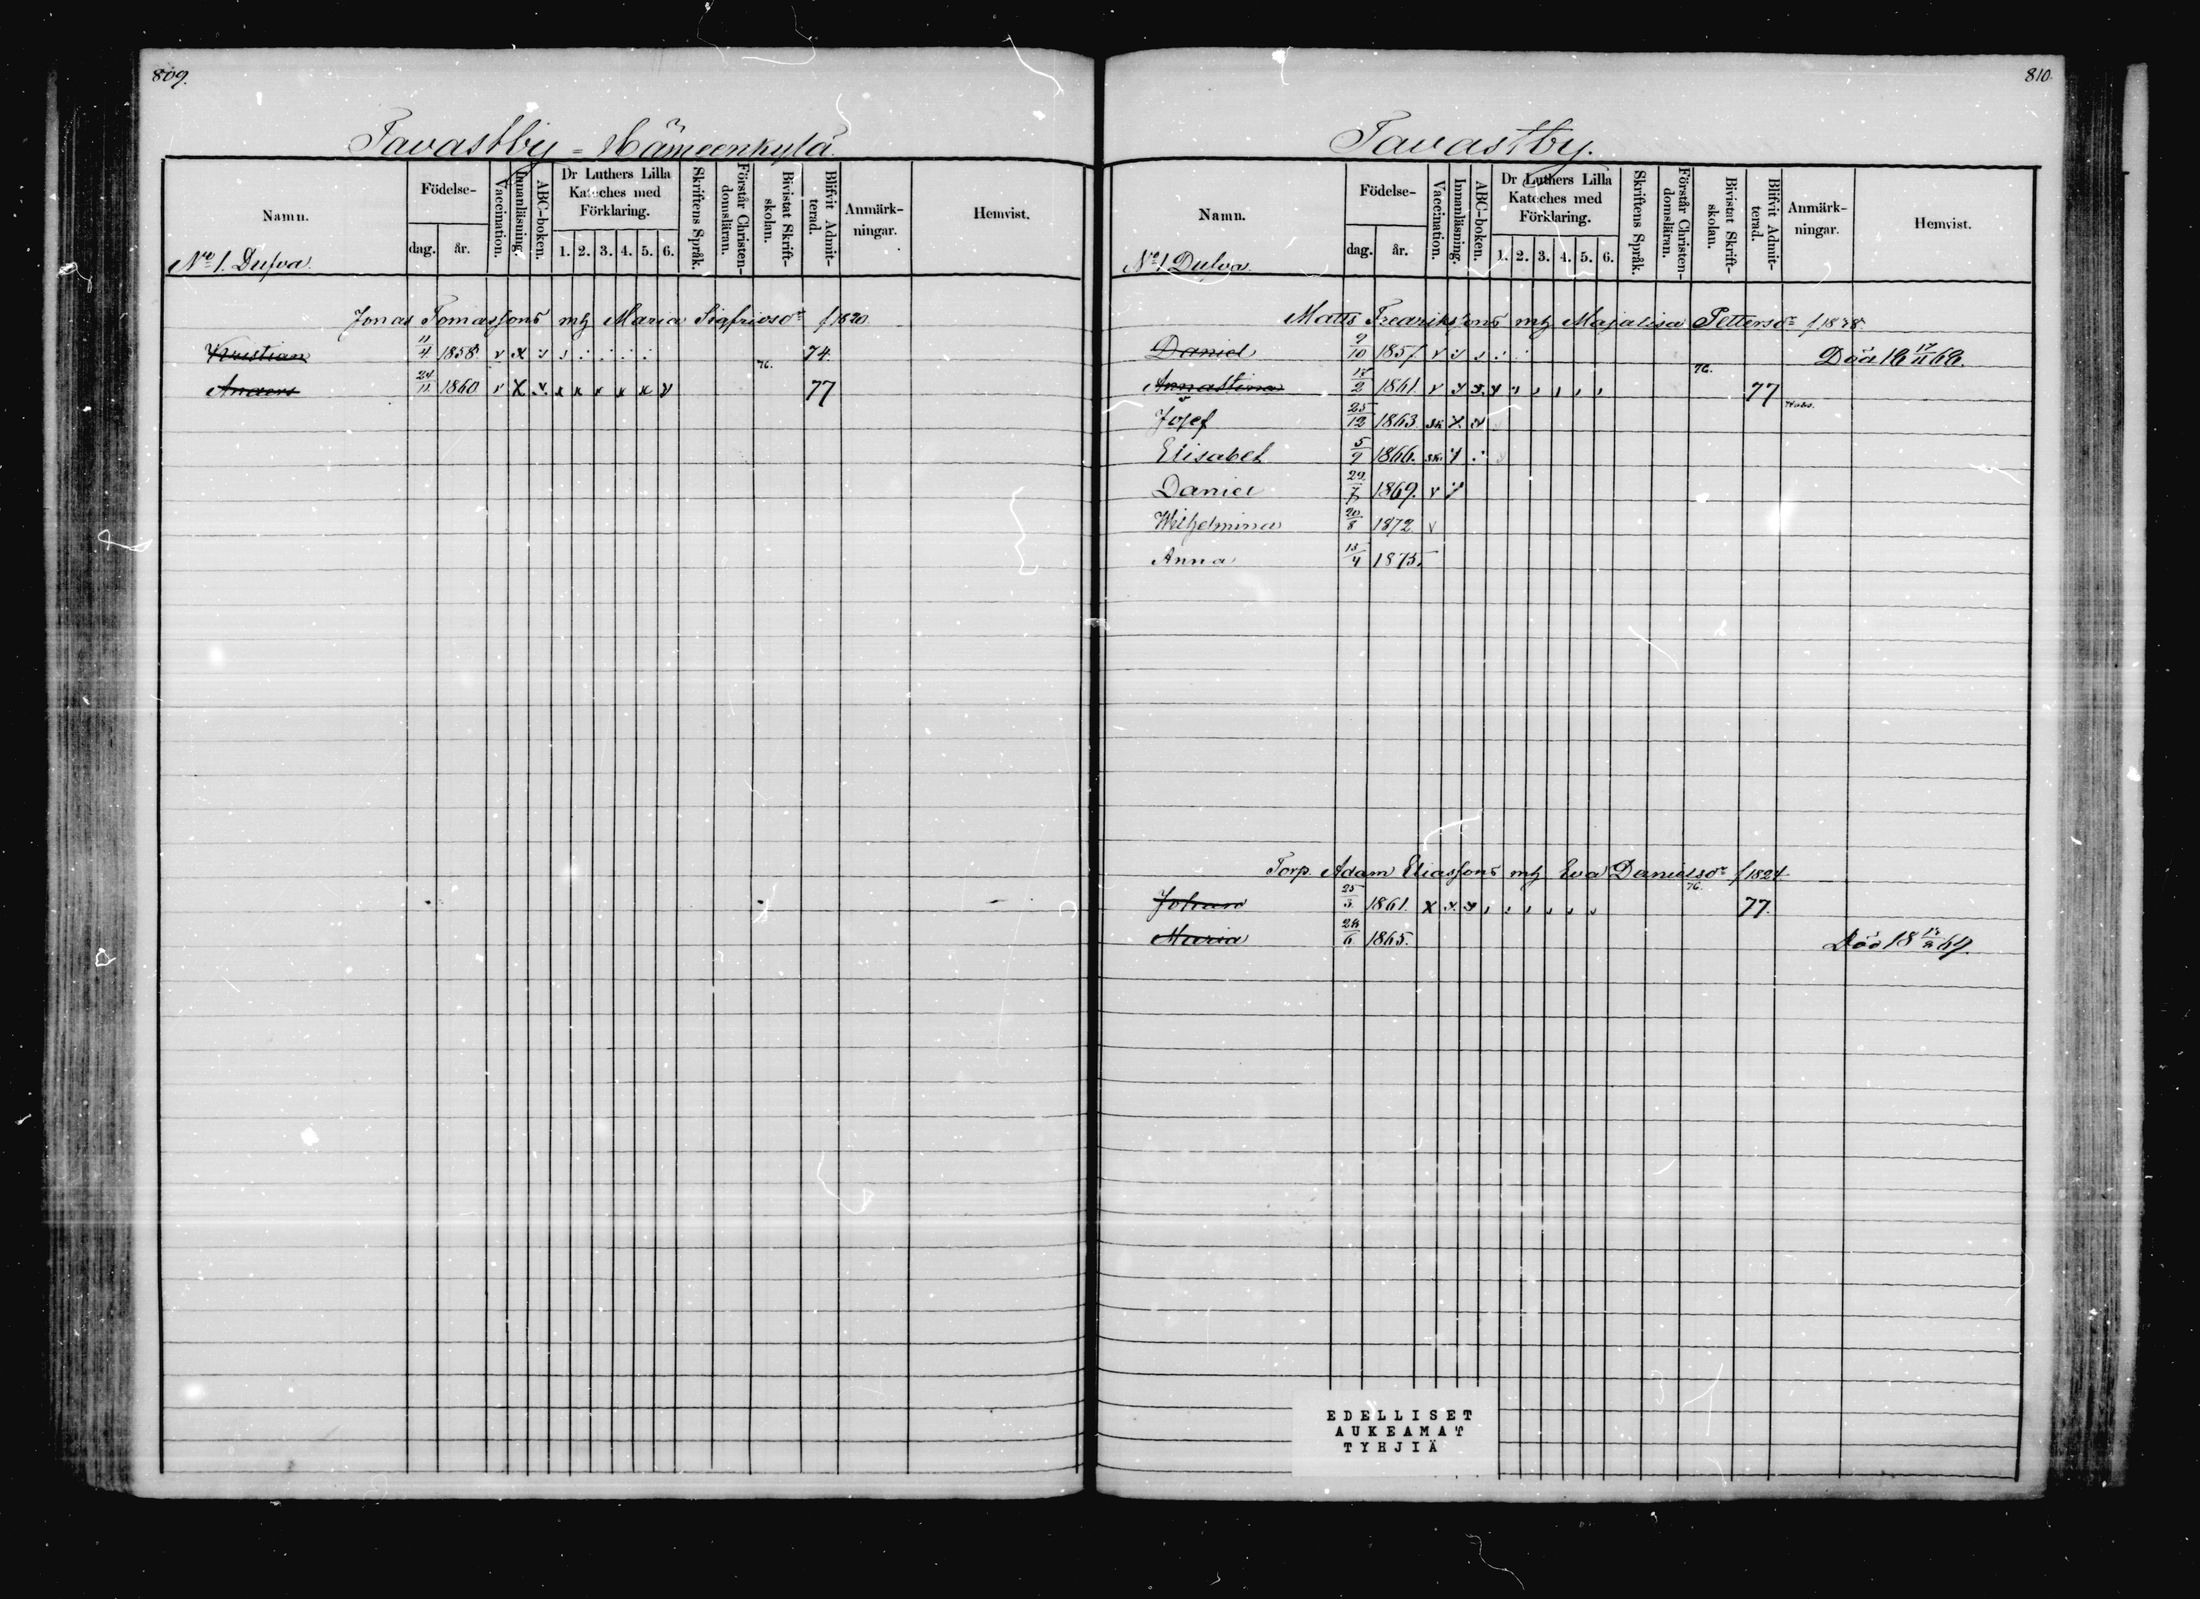 809.
Tavastby = Hämeenkylä.
Namn.
Födelse-
dag.
år.
Vaccination.
Innanläsning.
ABC-boken.
Dr Luthers Lilla
Kateches med
Förklaring.
1. 2. 3. 4. 5. 6.
Skriftens Språk.
Förstår Christen-
domsläran.
Bivistat Skrift-
skolan.
Blifvit Admit-
terad.
Anmärk-
ningar.
Hemvist.
No 1. Dufva.
Jonas Tomassons mh Maria Sigfridsdr f 1820.
Kristian 11/4 1858 v x 74.
Anders 24/11 1860 v x v. x x x x x v 76. 77
810.
Tavastby.
Namn.
Födelse-
dag.
år.
Vaccination.
Innanläsning.
ABC-boken.
Dr Luthers Lilla
Kateches med
Förklaring.
1. 2. 3. 4. 5. 6.
Skriftens Språk.
Förstår Christen-
domsläran.
Bivistat Skrift-
skolan.
Blifvit Admit-
terad.
Anmärk-
ningar.
Hemvist.
No 1 Dufva.
Matts Fredriksons mh Majalisa Pettersdr f 1838.
Daniel 9/10 1857 v Död 18 17/11 68.
Annastina 17/2 1861. v 76. 77
Josef 25/12 1863.
Elisabet 5/9 1866.
Daniel 29/7 1869. v
Wilhelmina 20/8 1872 v
Anna 13/4 1875.
Torp. Adam Eliassons mh Eva Danielsdr f 1824
Johan 25/3 1861. x 76. 77.
Maria 24/6 1865. Död 18 69.
EDELLISET
AUKEAMAT
TYHJIÄ